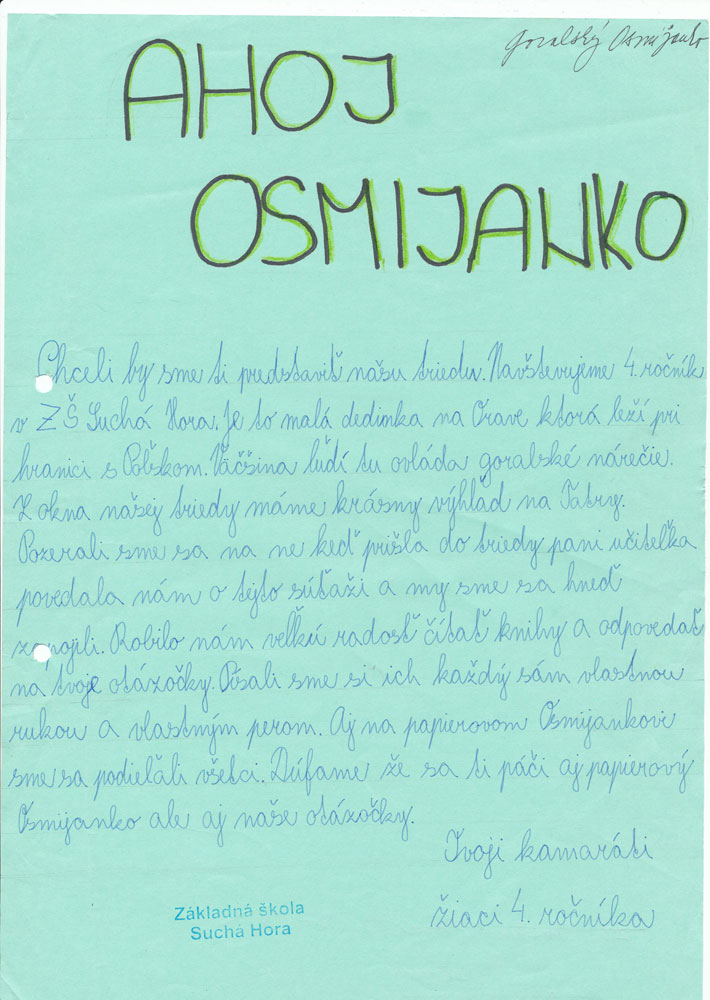 Goralský Osmijanko
AHOJ
OSMIJANKO
Chceli by sme ti predstaviť našu triedu. Navštevujeme 4. ročník
v ZŠ Suchá Hora. Je to malá dedinka na Orave ktorá leží pri
hranici s Poľskom. Väčšina ľudí tu ovláda goralské nárečie.
Z okna našej triedy máme krásny výhľad na Tatry.
Pozerali sme sa na ne keď prišla do triedy pani učiteľka
povedala nám o tejto súťaži a my sme sa hneď
zapojili. Robilo nám veľkú radosť čítať knihy a odpovedať
na tvoje otázočky. Písali sme si ich každý sám vlastnou
rukou a vlastným perom. Aj na papierovom Osmijankovi
sme sa podieľali všetci. Dúfame že sa ti páči aj papierový
Osmijanko ale aj naše otázočky.
Tvoji kamaráti
žiaci 4. ročníka
Základná škola
Suchá Hora